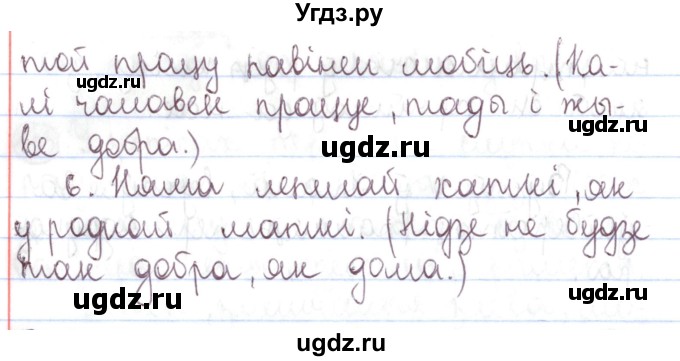 Угдз.ру
той працу павінен любіць. (Ка-
лі чалавек працуе, тады і жы-
ве добра.)
6. Няма лепшай хаткі, як
у роднай маткі. (Нідзе не будзе
так добра, як дома.)
ugdz.ru
ugdz.ru
ugdz.ru
ugdz.ru
ugdz.ru
ugdz.ru
ugdz.ru